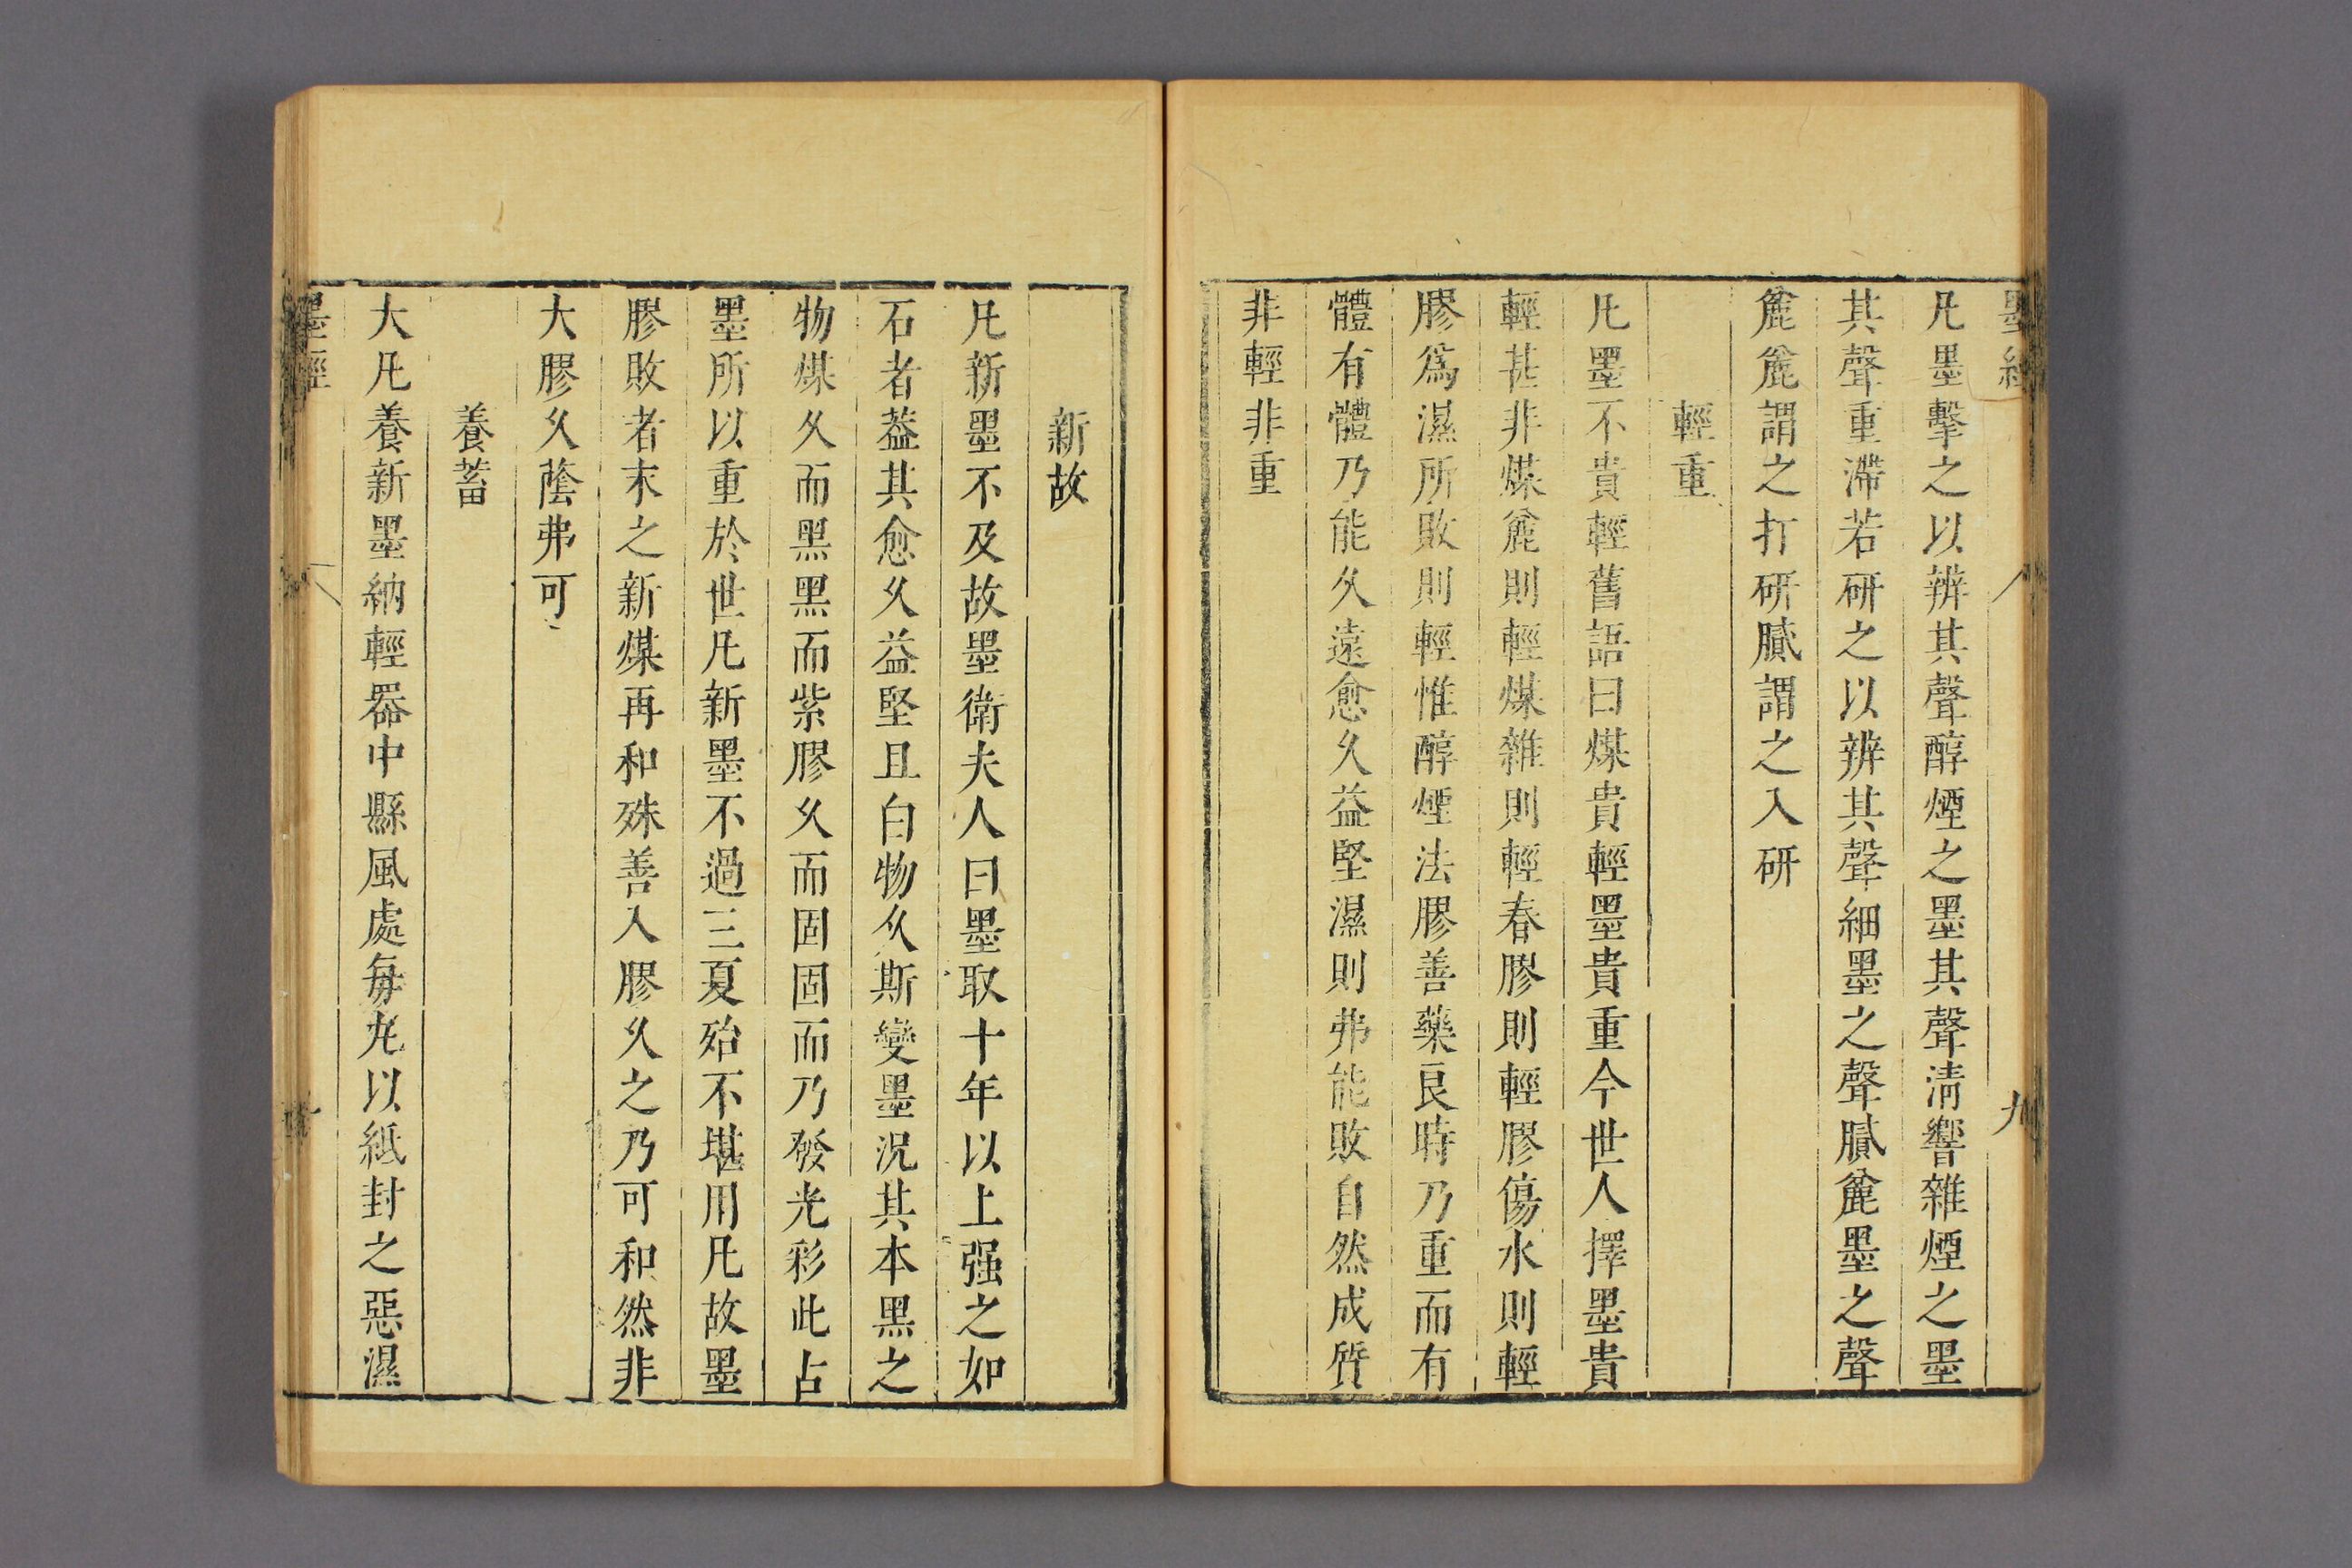 墨經
九
凡墨擊之以辨其聲醇煙之墨其聲淸響雜煙之墨
其聲重滯若研之以辨其聲細墨之聲膩麄墨之聲
麄麄謂之打研膩謂之入研
輕重
凡墨不貴輕舊語曰煤貴輕墨貴重今世人擇墨貴
輕甚非煤麄則輕煤雜則輕春膠則輕膠傷水則輕
膠爲濕所敗則輕惟醇煙法膠善藥良時乃重而有
體有體乃能久遠愈久益堅濕則弗能敗自然成質
非輕非重
新故
凡新墨不及故墨衛夫人曰墨取十年以上强之如
石者葢其愈久益堅且白物久斯變墨況其本黑之
物煤久而黑黑而紫膠久而固固而乃發光彩此占
墨所以重於世凡新墨不過三夏殆不堪用凡故墨
膠敗者末之新煤再和殊善入膠久之乃可和然非
大膠久蔭弗可
養蓄
大凡養新墨納輕器中縣風處每丸以紙封之惡濕
墨經